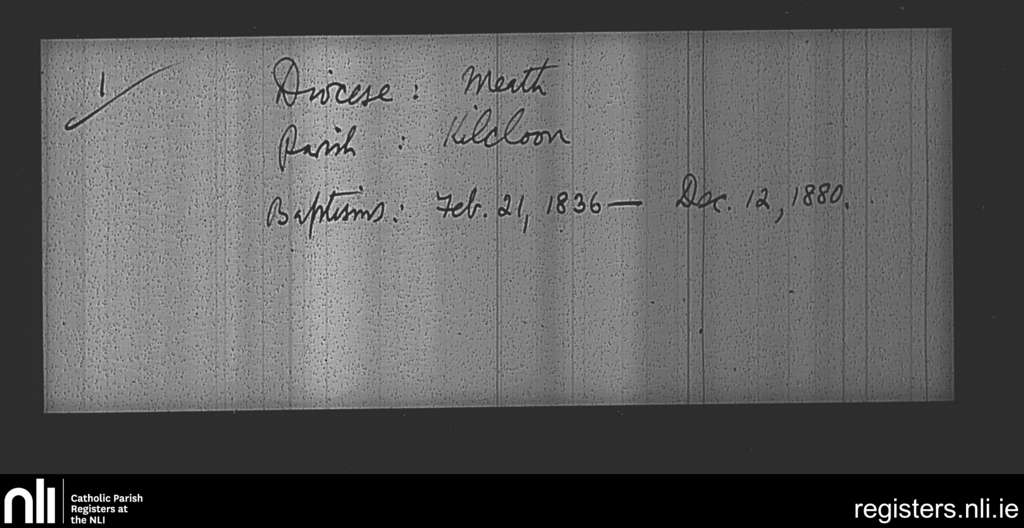 1
Diocese : Meath
Parish : Kilcloon
Baptisms : Feb. 21, 1836 — Dec. 12, 1880.
nli
Catholic Parish
Registers at
the NLI
registers.nli.ie